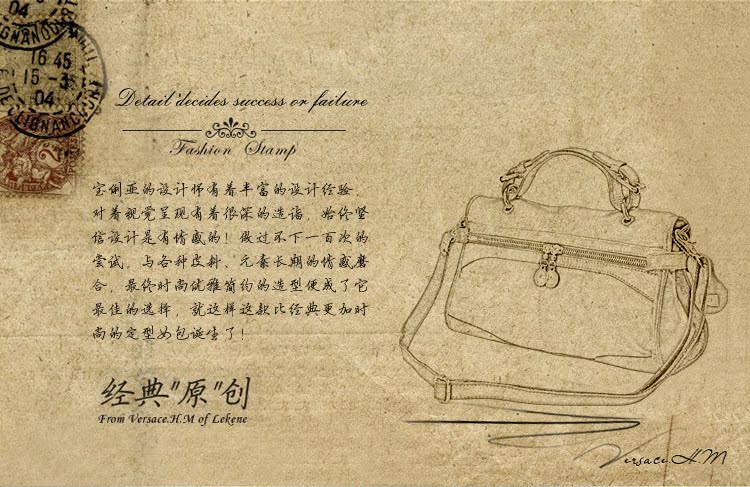 04
LIGNANCOURT
16 45
15 - 3
04
DE CLIGNANCOURT
Detail decides success or failure
Fashion Stamp
宝俐亚的设计师有着丰富的设计经验,
对着视觉呈现有着很深的造诣, 始终坚
信设计是有情感的! 做过不下一百次的
尝试, 与各种皮料、元素长期的情感磨
合, 最终时尚优雅简约的造型便成了它
最佳的选择, 就这样这款比经典更加时
尚的定型女包诞生了!
经典"原"创
From Versace.H.M of Lekene
Versace.H.M